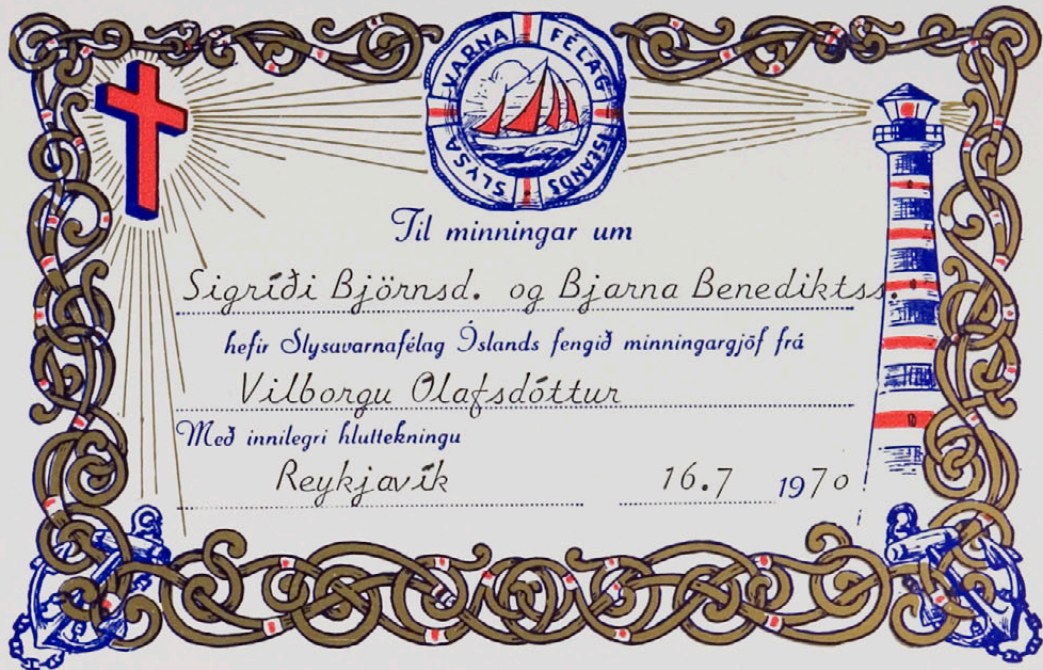 SLYSA VARNA FÉLAG ÍSLANDS
Til minningar um
Sigríði Björnsd. og Bjarna Benediktss.
hefir Slysavarnafélag Íslands fengið minningargjöf frá
Vilborgu Olafsdóttur
Með innilegri hluttekningu
Reykjavík 16.7 1970